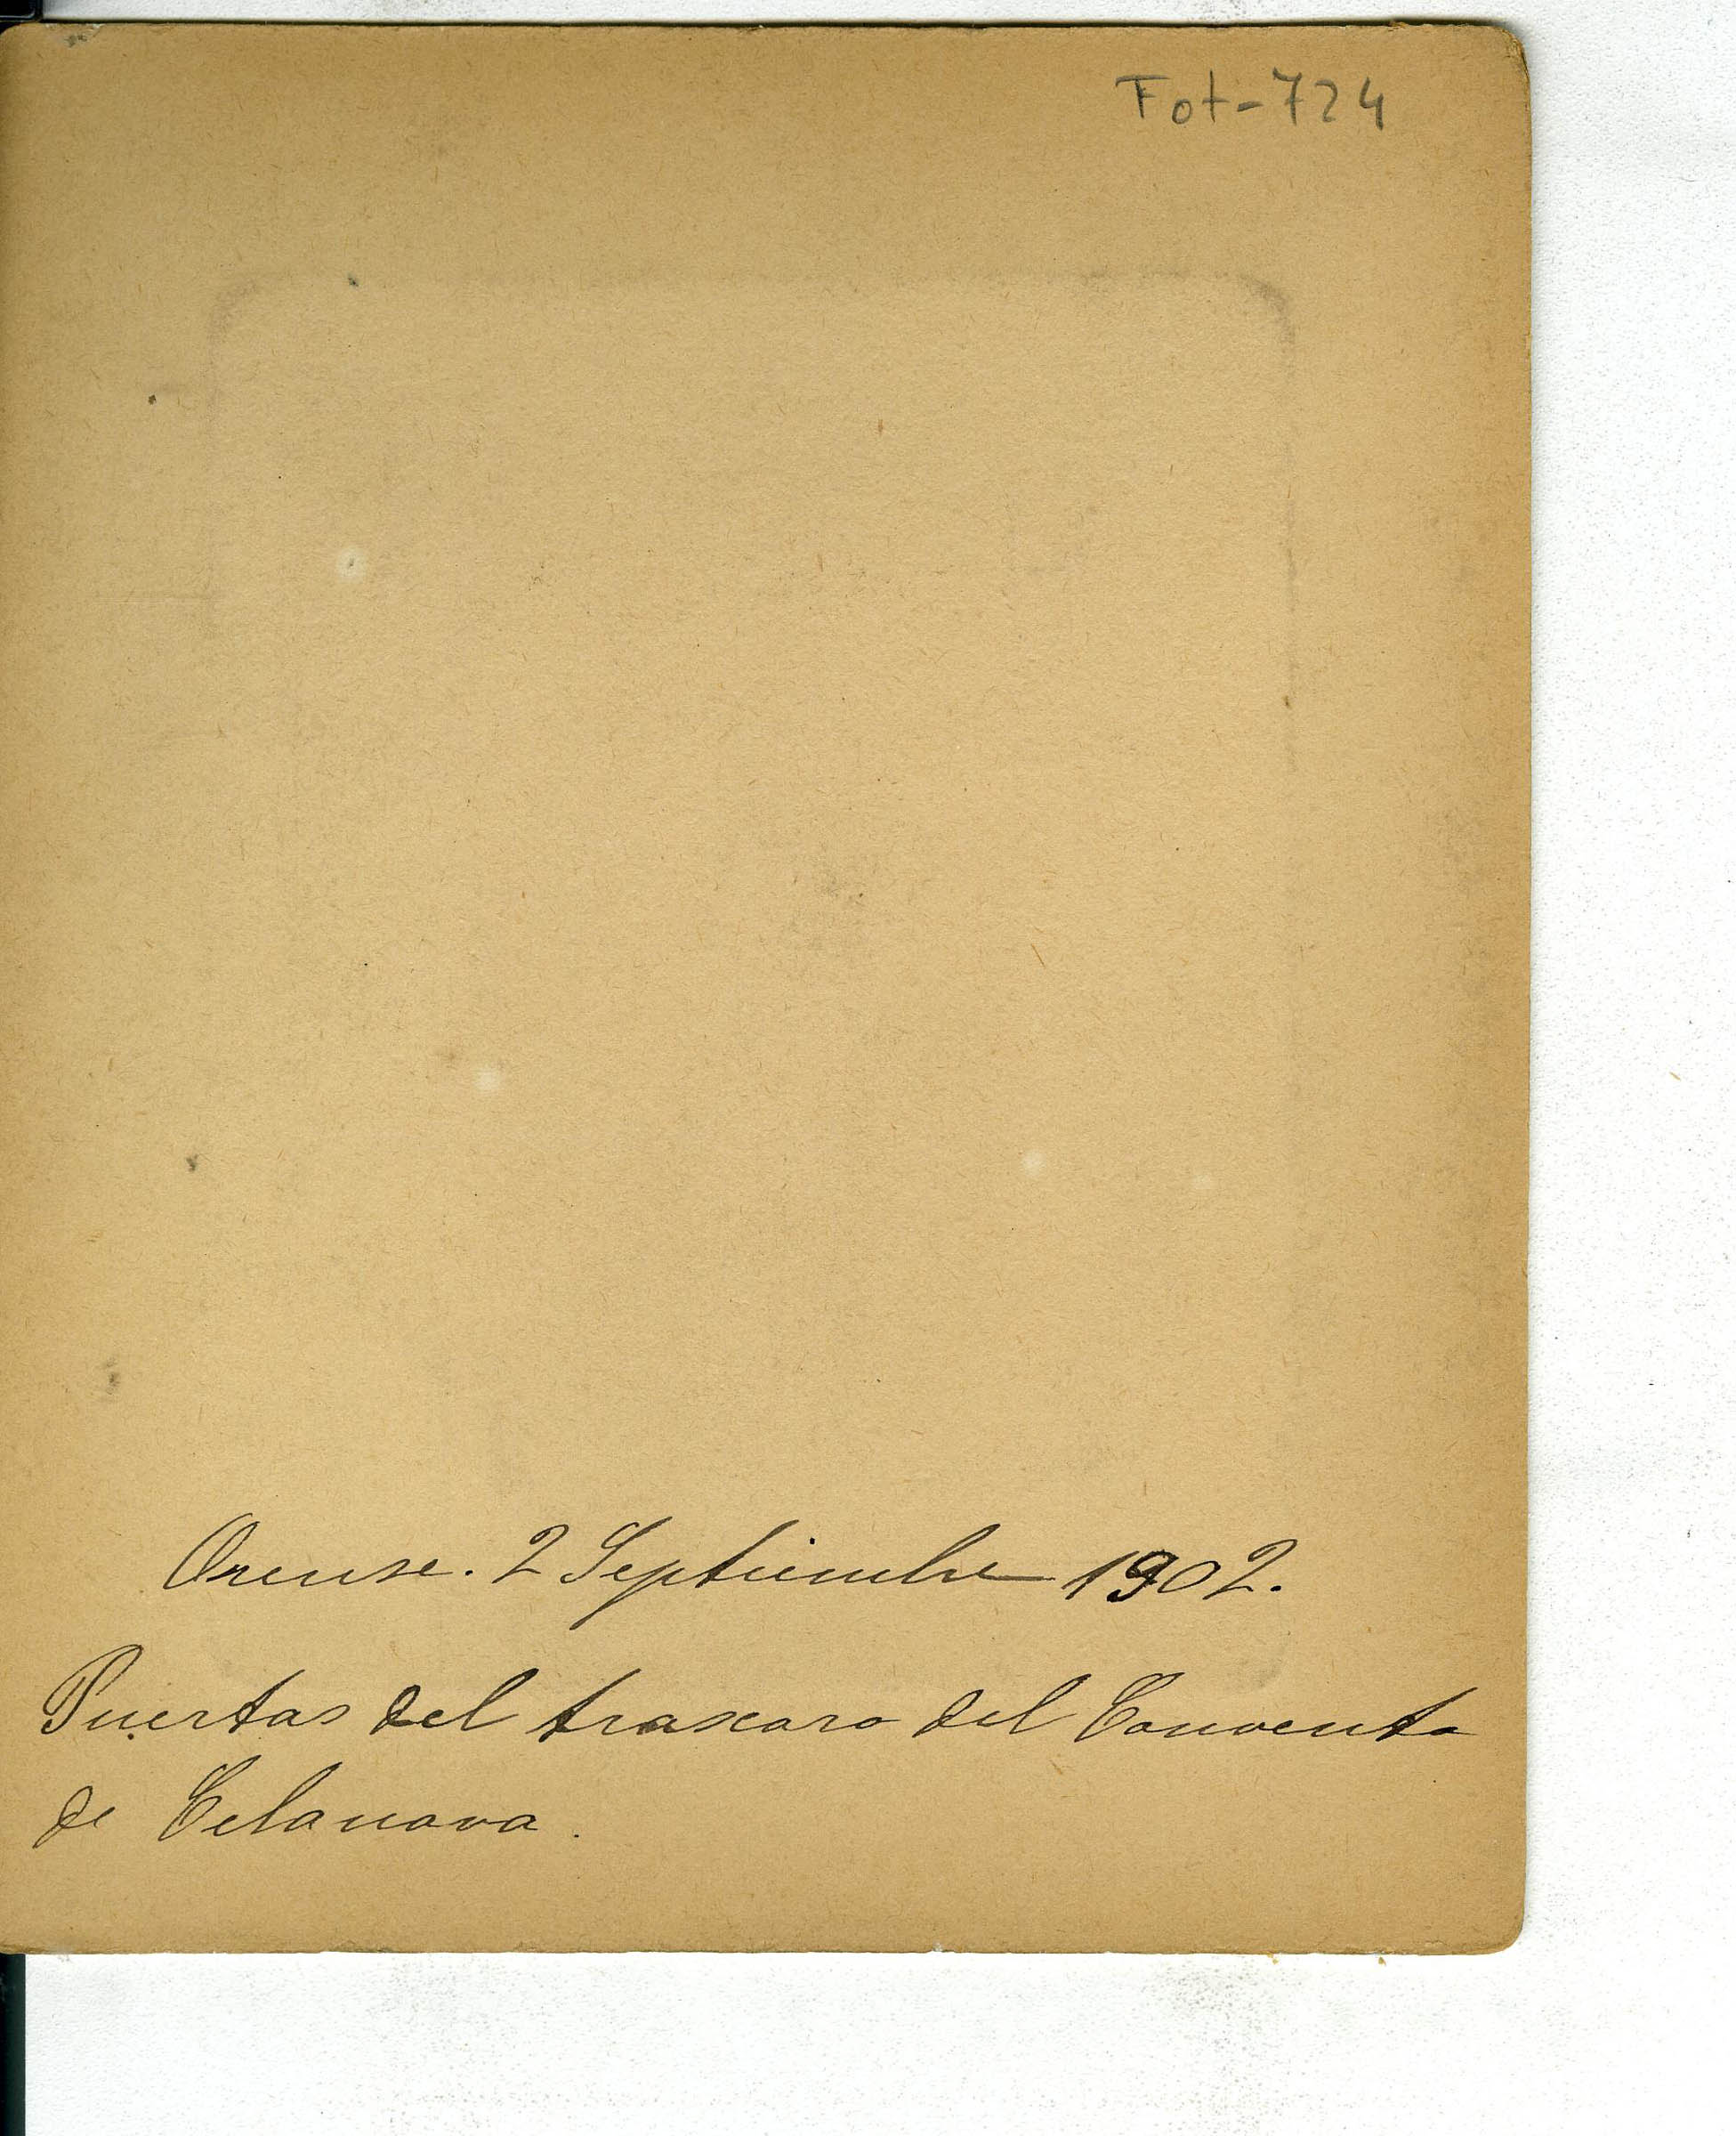 Fot-724
Orense. 2 Septiembre 1902.
Puertas del trascoro del Convento
de Celanova.